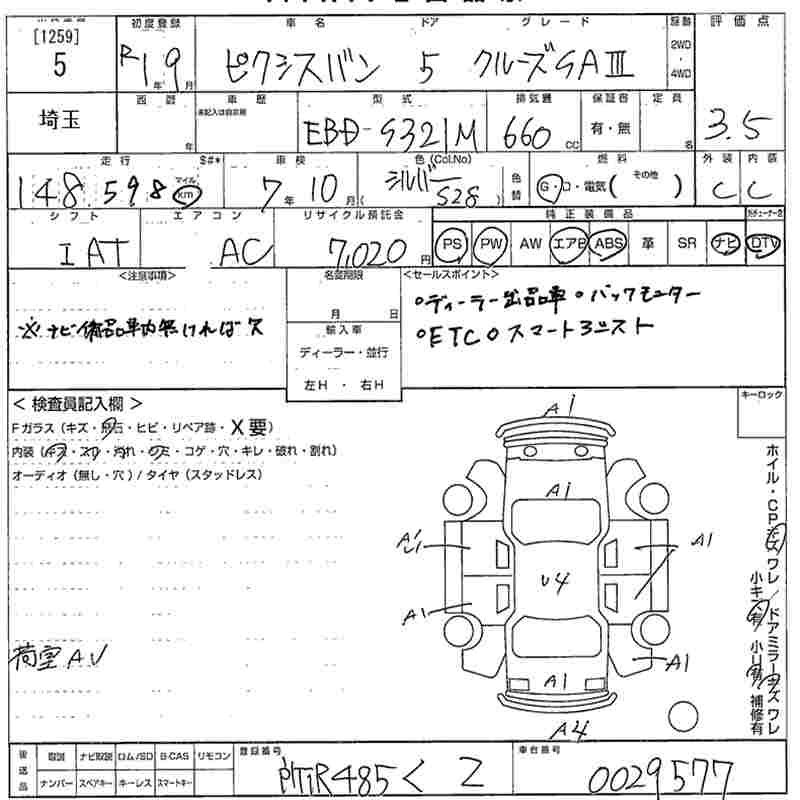 [1259]
5
初度登録
R1年9月
車名 ドア グレード
ピクシスバン 5 クルーズSAⅢ
駆動
2WD
・
4WD
評価点
3.5
埼玉
西暦
年
車歴
未記入は自家用
型式
EBD-S321M
排気量
660 cc
保証書
有・無
定員
名
走行 $#*
148,598 マイル km
車検
7年10月
色(Col.No)
シルバー
S28
色替
燃料
G・ロ・電気( その他 )
外装 内装
C C
シフト
IAT
エアコン
AC
リサイクル預託金
7,020円
純正装備品
PS PW AW エアB ABS 革 SR ナビ DTV
<注意事項>
※ナビ備品車内無ければ欠
名変期限
月 日
輸入車
ディーラー・並行
左H ・ 右H
<セールスポイント>
○ディーラー出品車○バックモニター
○ETC○スマートアシスト
キーロック
< 検査員記入欄 >
Fガラス(キズ・飛石・ヒビ・リペア跡・X要)
内装(キズ・スレ・汚れ・シミ・コゲ・穴・キレ・破れ・割れ)
オーディオ(無し・穴)/タイヤ(スタッドレス)
荷室AU
A1
A1
A1
A1
U4
A1
A1
A1
A4
ホイル・CPキズワレ/ドアミラーキズワレ
小キズ有 小凹有 補修有
後送品
取説 ナビ取説 ロム/SD B-CAS リモコン
ナンバー スペアキー キーレス スマートキー
登録番号
485 く 2
車台番号
0029577